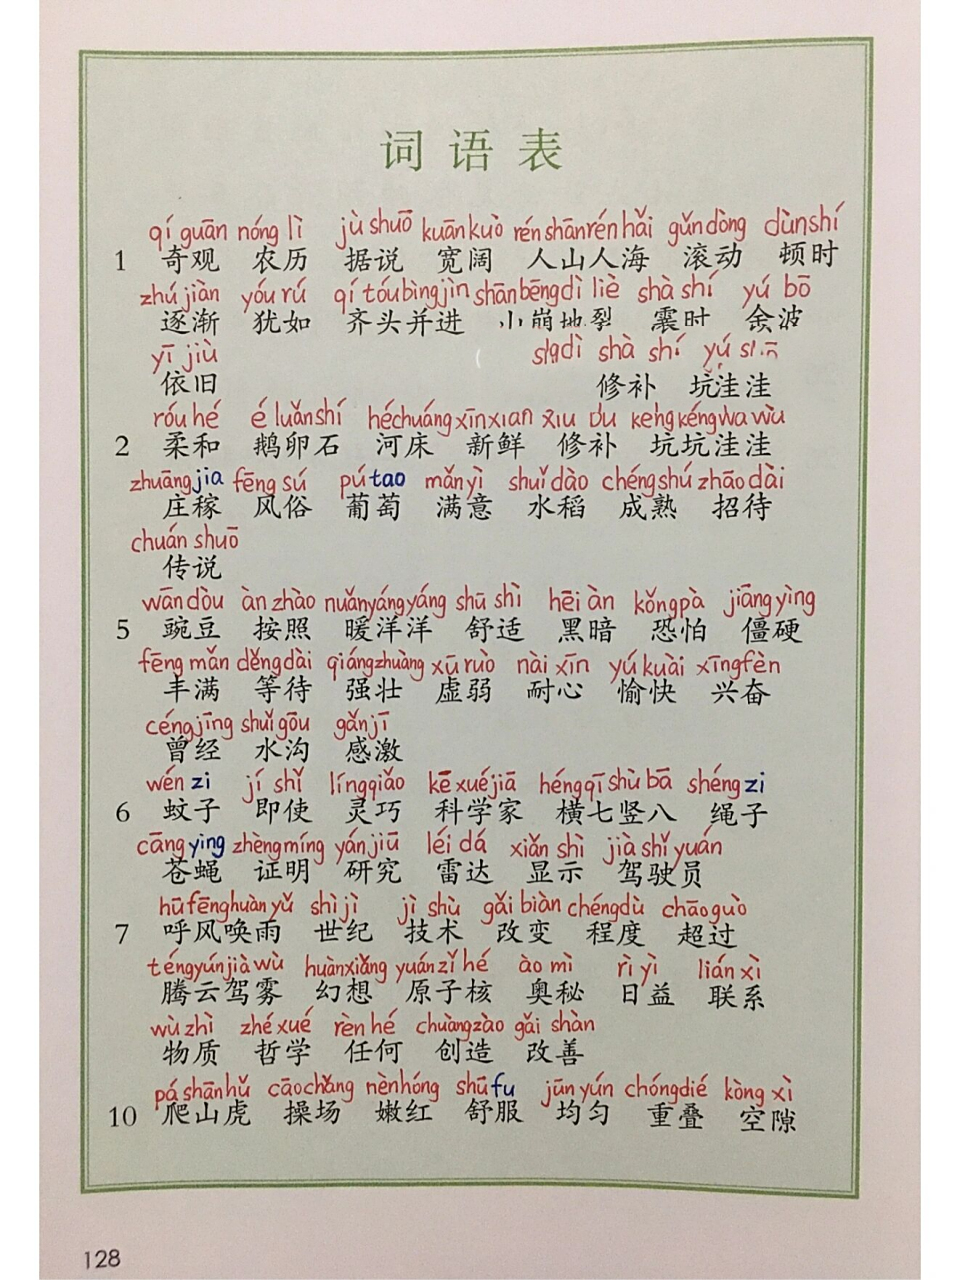 词语表
qí guān nóng lì jù shuō kuān kuò rén shān rén hǎi gǔn dòng dùn shí
1 奇观 农历 据说 宽阔 人山人海 滚动 顿时
zhú jiàn yóu rú qí tóu bìng jìn shān bēng dì liè shà shí yú bō
逐渐 犹如 齐头并进 崩地裂 霎时 余波
yī jiù dì shà shí yú
依旧 修补 坑洼洼
róu hé é luǎn shí hé chuáng xīn xian xiu bu keng kéng wa wù
2 柔和 鹅卵石 河床 新鲜 修补 坑坑洼洼
zhuāng jia fēng sú pú tao mǎn yì shuǐ dào chéng shú zhāo dài
庄稼 风俗 葡萄 满意 水稻 成熟 招待
chuán shuō
传说
wān dòu àn zhào nuǎn yáng yáng shū shì hēi àn kǒng pà jiāng yìng
5 豌豆 按照 暖洋洋 舒适 黑暗 恐怕 僵硬
fēng mǎn děng dài qiáng zhuàng xū ruò nài xīn yú kuài xīng fèn
丰满 等待 强壮 虚弱 耐心 愉快 兴奋
céng jīng shuǐ gōu gǎn jī
曾经 水沟 感激
wén zi jí shǐ líng qiǎo kē xué jiā héng qī shù bā shéng zi
6 蚊子 即使 灵巧 科学家 横七竖八 绳子
cāng ying zhèng míng yán jiū léi dá xiǎn shì jià shǐ yuán
苍蝇 证明 研究 雷达 显示 驾驶员
hū fēng huàn yǔ shì jì jì shù gǎi biàn chéng dù chāo guò
7 呼风唤雨 世纪 技术 改变 程度 超过
téng yún jià wù huàn xiǎng yuán zǐ hé ào mì rì yì lián xì
腾云驾雾 幻想 原子核 奥秘 日益 联系
wù zhì zhé xué rèn hé chuàng zào gǎi shàn
物质 哲学 任何 创造 改善
pá shān hǔ cāo chǎng nèn hóng shū fu jūn yún chóng dié kòng xì
10 爬山虎 操场 嫩红 舒服 均匀 重叠 空隙
128